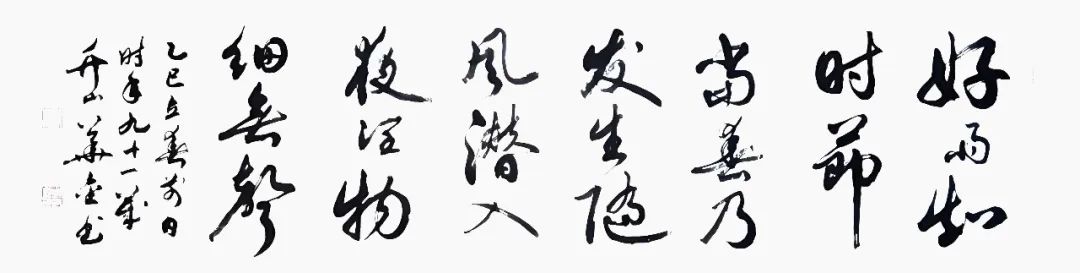 好雨知
时節
当春乃
发生随
風潜入
夜润物
细無聲
乙巳立春前日
时年九十一歲
山華金书